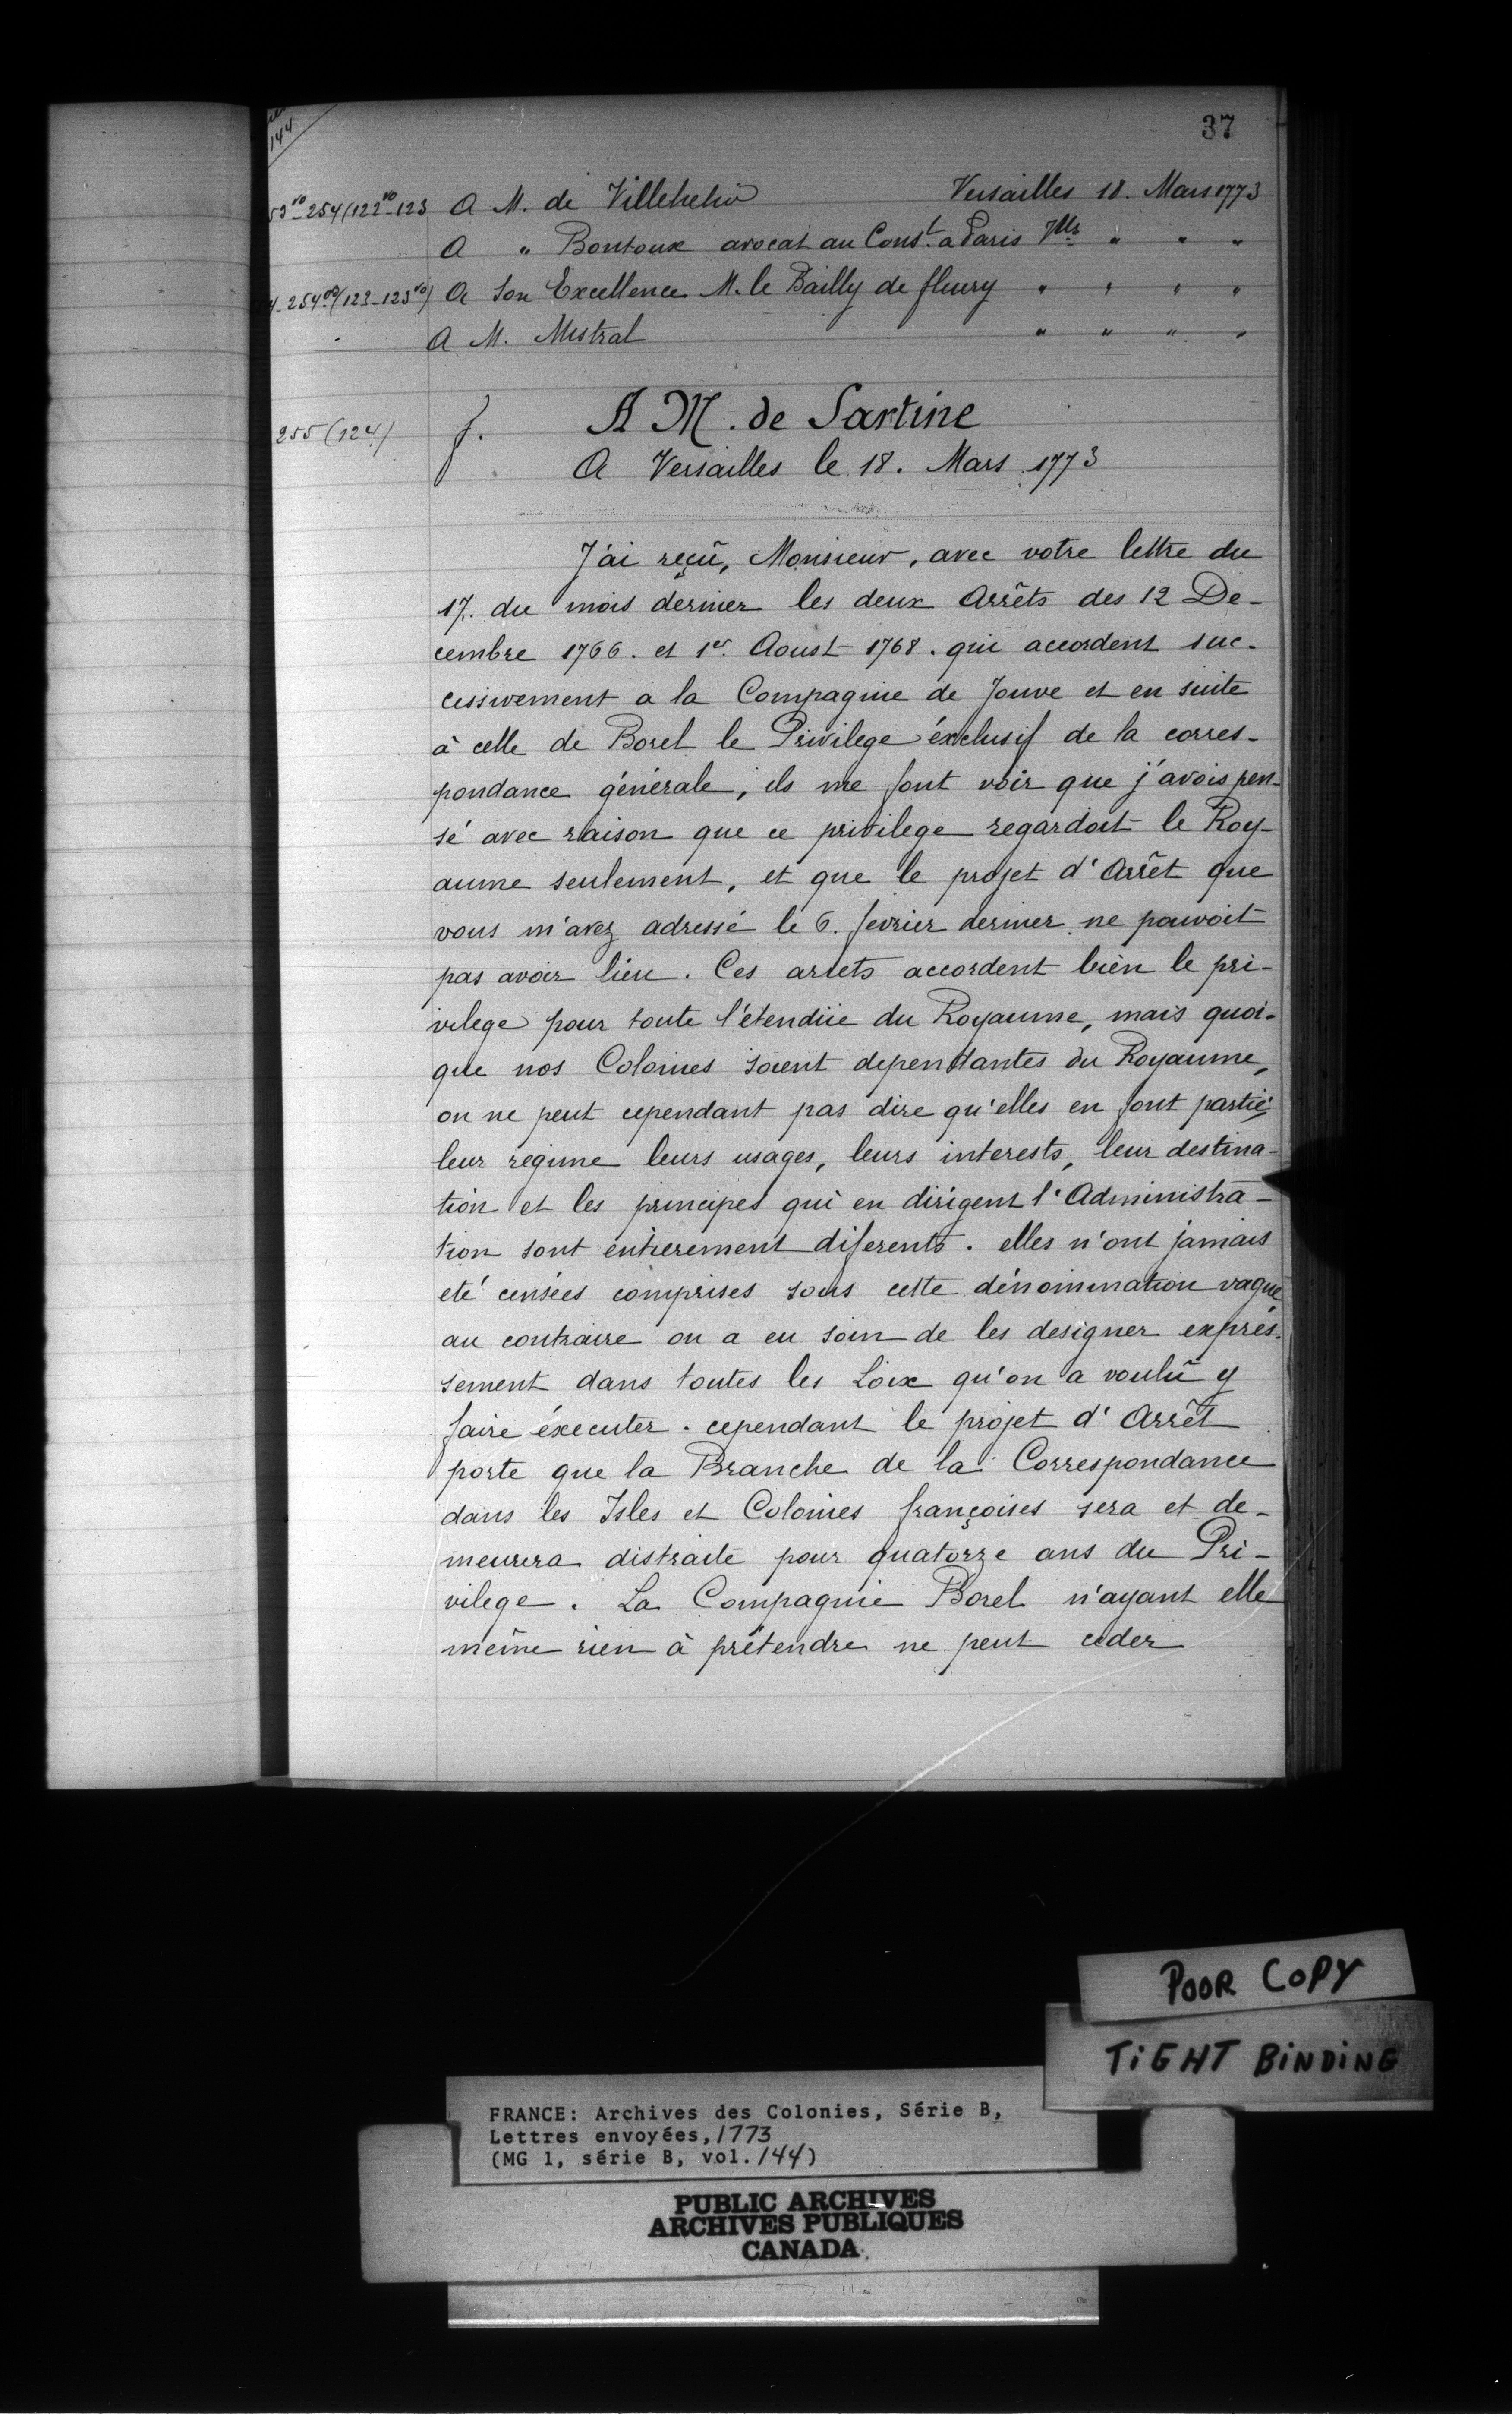 144
37
53vo-254(122vo-123 A M. de Villehelio Versailles 18. Mars 1773
A " Bontoux avocat au Const. a Paris Vlls " " "
254vo(123-123vo) A Son Excellence M. le Bailly de fleury " " " "
A M. Mistral " " " "
255 (124) f. A M. de Sartine
A Versailles le 18. Mars 1773
J'ai reçû, Monsieur, avec votre lettre du
17. du mois dernier les deux Arrêts des 12 De-
cembre 1766. et 1er. Aoust 1768. qui accordent suc-
cessivement a la Compagnie de Jouve et en suite
à celle de Borel le Privilege éxclusif de la corres-
pondance générale, ils me font voir que j'avois pen-
sé avec raison que ce privilege regardoit le Roy-
aume seulement, et que le projet d'Arrêt que
vous m'avez adressé le 6. fevrier dernier ne pouvoit
pas avoir lieu. Ces arrets accordent bien le pri-
vilege pour toute l'étendüe du Royaume, mais quoi-
que nos Colonies soient dependantes du Royaume,
on ne peut cependant pas dire qu'elles en font partie,
leur regime leurs usages, leurs interests, leur destina-
tion et les principes qui en dirigent l'Administra-
tion sont entierement diferents. elles n'ont jamais
eté censées comprises sous cette dénomination vague
au contraire on a eu soin de les designer expres-
sement dans toutes les Loix qu'on a voulû y
faire éxecuter. cependant le projet d'Arrêt
porte que la Branche de la Correspondance
dans les Isles et Colonies françoises sera et de-
meurera distraite pour quatorze ans du Pri-
vilege. La Compagnie Borel n'ayant elle
même rien à prétendre ne peut ceder
POOR COPY
TIGHT BINDING
FRANCE: Archives des Colonies, Série B,
Lettres envoyées, 1773
(MG 1, série B, vol. 144)
PUBLIC ARCHIVES
ARCHIVES PUBLIQUES
CANADA